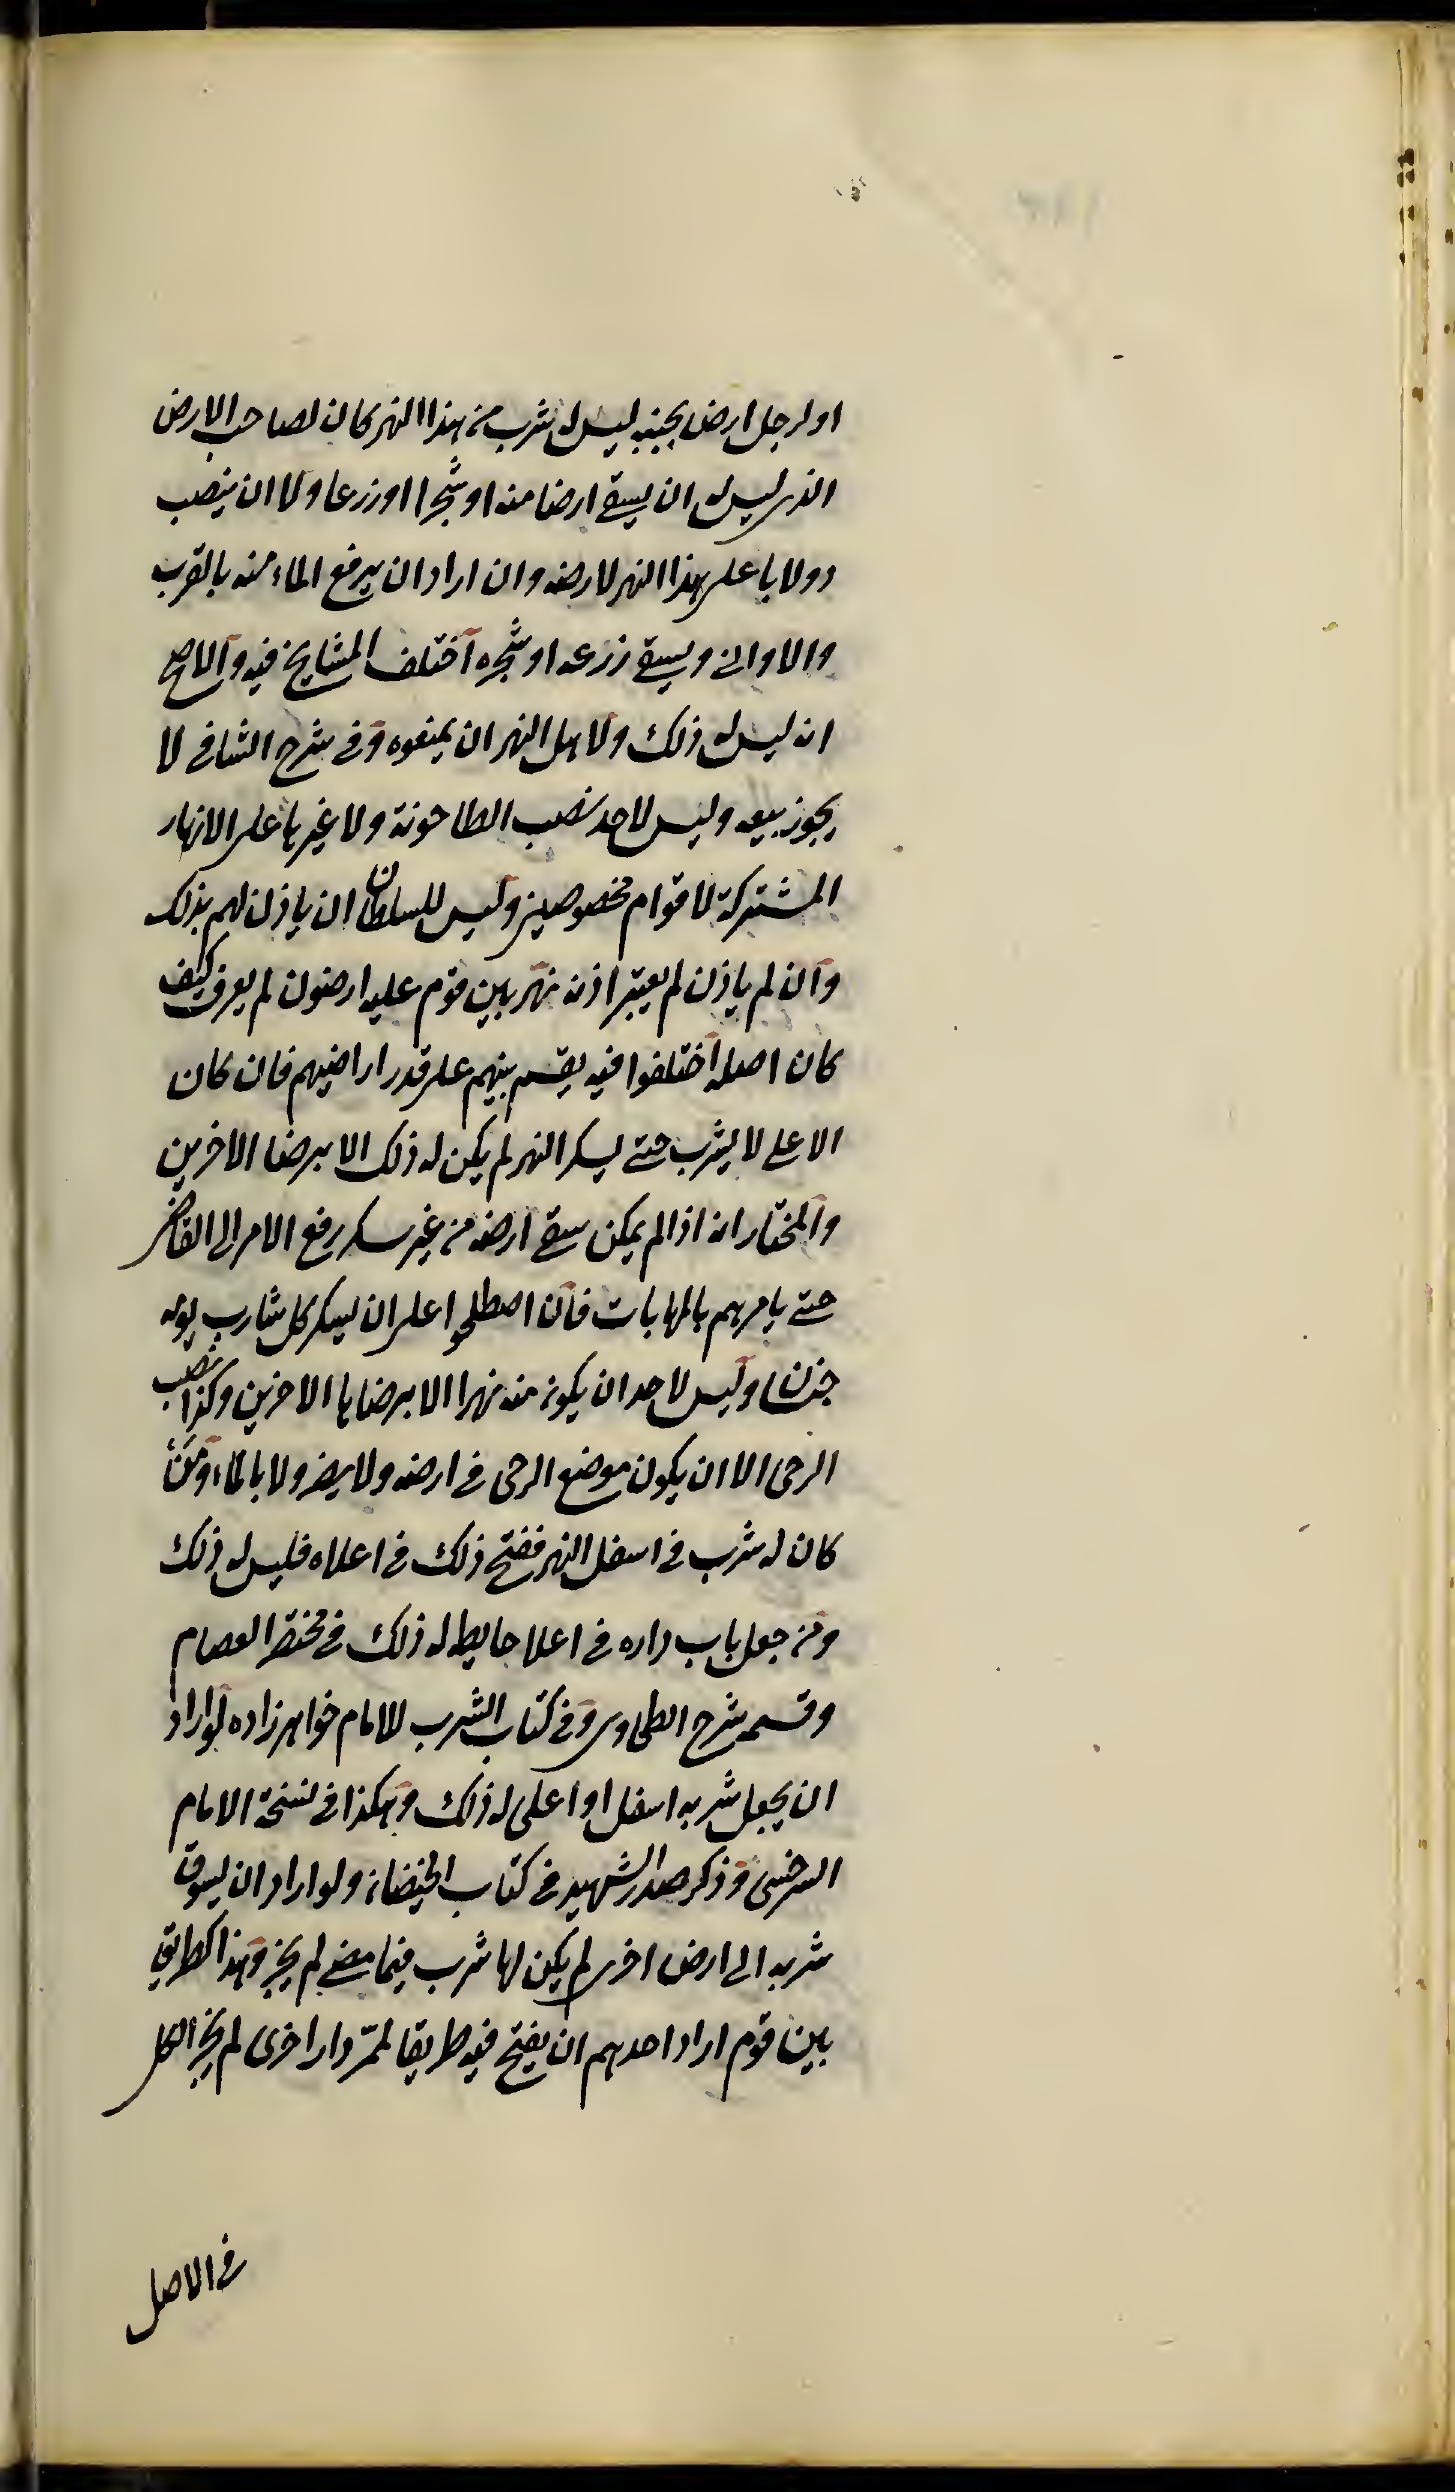 او لرجل ارض بجنبه ليس له شرب من هذا النهر كان لصاحب الارض
الذى ليس له ان يسقى ارضا منه او شجرا او زرعا ولا ان ينصب
دولابا على هذا النهر لارضه وان اراد ان يرفع الماء منه بالقرب
والاوانى ويسقى زرعه او شجره اختلف المشايخ فيه والاصح
انه ليس له ذلك ولاهل النهر ان يمنعوه وفى شرح الشافى لا
يجوز بيعه وليس لاحد نصب الطاحونة ولا غيرها على الانهار
المشتركة لاقوام مخصوصين وليس للسلطان ان ياذن لهم بذلك
وان لم ياذن لم يعتبر اذنه نهر بين قوم عليه ارضون لم يعرف كيف
كان اصله اختلفوا فيه يقسم بينهم على قدر اراضيهم فان كان
الاعلى لا يشرب حتى يسكر النهر لم يكن له ذلك الا برضا الاخرين
والمختار انه اذا لم يمكن سقى ارضه من غير سكر رفع الامر الى القاضى
حتى يامرهم بالمهابات فان اصطلحوا على ان يسكر كل شارب يومه
وليس لاحد ان يكون منه نهرا الا برضايا الاخرين وكذا نصب
الرحى الا ان يكون موضع الرحى فى ارضه ولا يضر ولا بالماء ومن
كان له شرب فى اسفل النهر ففتح ذلك فى اعلاه فليس له ذلك
ومن جعل باب داره فى اعلا حايط له ذلك فى مختصر العصام
وقسمه شرح الطحاوى وفى كتاب الشرب للامام خواهر زاده لو اراد
ان يجعل شربه اسفل او اعلى له ذلك وهكذا فى نسخة الامام
السرخسى وذكر صدر الشهيد فى كتاب الحيضان ولو اراد ان يسوق
شربه الى ارض اخرى لم يكن لها شرب فيما مضى لم يجز وهذا كطريق
بين قوم اراد احدهم ان يفتح فيه طريقا لممر دار اخرى لم يجز الكل
فى الاصل